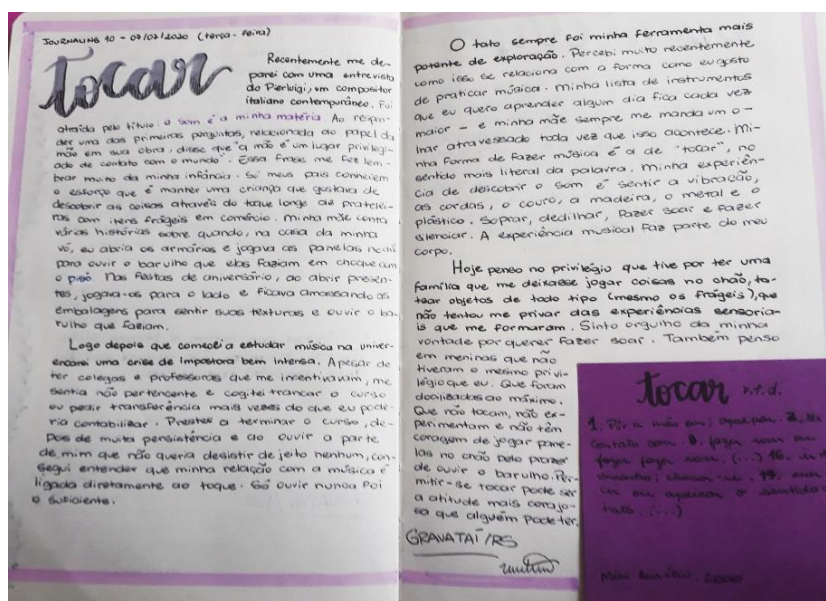 JOURNALING 10 - 07/07/2020 (terça-feira)
tocar
Recentemente me de-
parei com uma entrevista
do Pierluigi, um compositor
italiano contemporâneo. Fui
atraída pelo título: o som é a minha matéria. Ao respon-
der uma das primeiras perguntas, relacionada ao papel da
mão em sua obra, disse que "a mão é um lugar privilegi-
ado de contato com o mundo". Essa frase me fez lem-
brar muito da minha infância. Só meus pais conhecem
o esforço que é manter uma criança que gostava de
descobrir as coisas através do toque longe de pratelei-
ras com itens frágeis em comércio. Minha mãe conta
várias histórias sobre quando, na casa da minha
vó, eu abria os armários e jogava as panelas no chão
para ouvir o barulho que elas faziam em choque com
o piso. Nas festas de aniversário, ao abrir presen-
tes, jogava-os para o lado e ficava amassando as
embalagens para sentir suas texturas e ouvir o ba-
rulho que faziam.
Logo depois que comecei a estudar música na univer-
encarei uma crise de impostora bem intensa. Apesar de
ter colegas e professores que me incentivavam, me
sentia não pertencente e cogitei trancar o curso
ou pedir transferência mais vezes do que eu pode-
ria contabilizar. Prestes a terminar o curso, de-
pois de muita persistência e ao ouvir a parte
de mim que não queria desistir de jeito nenhum, con-
segui entender que minha relação com a música é
ligada diretamente ao toque. Só ouvir nunca foi
o suficiente.
O tato sempre foi minha ferramenta mais
potente de exploração. Percebi muito recentemente
como isso se relaciona com a forma como eu gosto
de praticar música. Minha lista de instrumentos
que eu quero aprender algum dia fica cada vez
maior - e minha mãe sempre me manda um o-
lhar atravessado toda vez que isso acontece. Mi-
nha forma de fazer música é a de "tocar", no
sentido mais literal da palavra. Minha experiên-
cia de descobrir o som é sentir a vibração,
as cordas, o couro, a madeira, o metal e o
plástico. Soprar, dedilhar, fazer soar e fazer
silenciar. A experiência musical faz parte do meu
corpo.
Hoje penso no privilégio que tive por ter uma
família que me deixasse jogar coisas no chão, to-
tear objetos de todo tipo (mesmo os frágeis), que
não tentou me privar das experiências sensoria-
is que me formaram. Sinto orgulho da minha
vontade por querer fazer soar. Também penso
em meninas que não
tiveram o mesmo privi-
légio que eu. Que foram
docilizadas ao máximo.
Que não tocam, não ex-
perimentam e não têm
coragem de jogar pane-
las no chão pelo prazer
de ouvir o barulho. Per-
mitir-se tocar pode ser
a atitude mais corajo-
sa que alguém pode ter.
GRAVATAÍ/RS
tocar v.t.d.
1. Pôr a mão em; apalpar. 2.
contato com. 8. fazer soar
fazer soar. (...) 16.
19.
o sentido
tato. (...)
Mini Aurélio, 2000